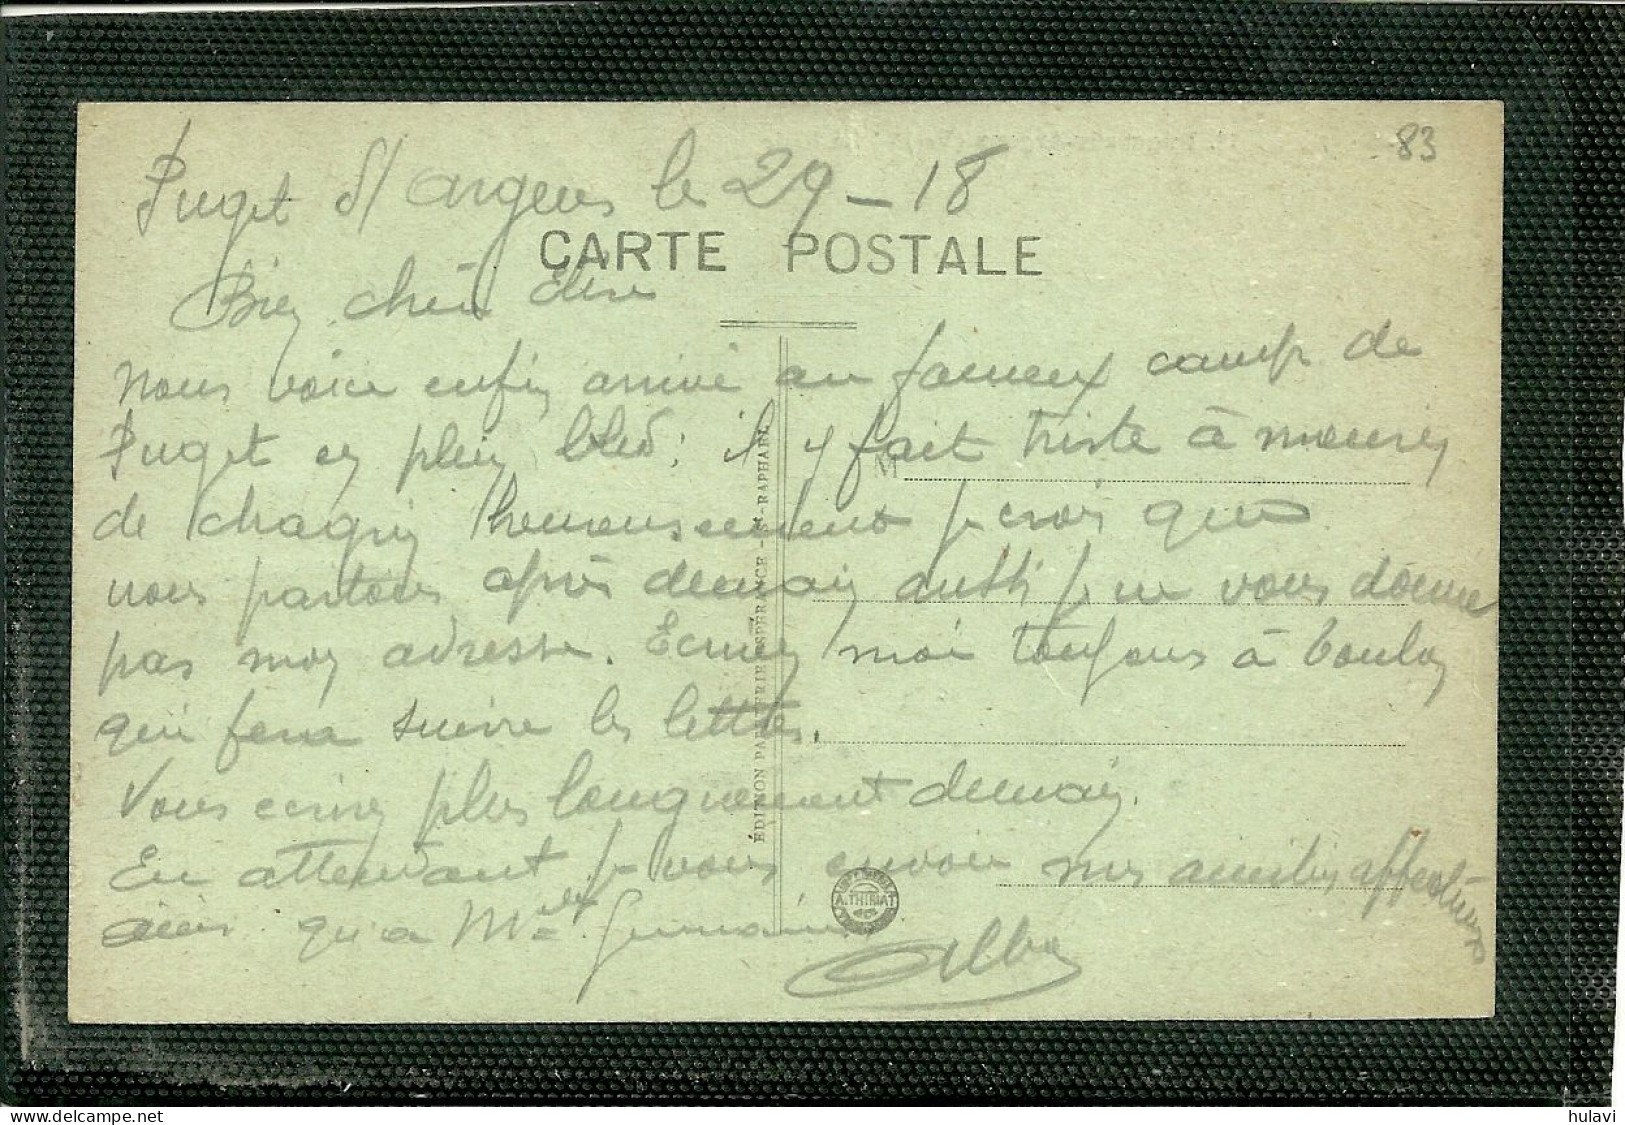 83
Puget s/ argens le 29 - 18
CARTE POSTALE
Bien chère Elise
nous voici enfin arrivé au fameux camp de
Puget en plein bled; il y fait triste à mourir
M
de chagrin heureusement je crois que
nous partons après demain aussi je ne vous donne
pas mon adresse. Ecrivez moi toujours à Toulon
qui fera suivre les lettres.
Vous écrirez plus longuement demain.
En attendant je vous envoie mes amitiés affectueuses
ainsi qu'a Mlle Germaine
Albe
ÉDITION PAPETERIE ESPÉRANCE - ST-RAPHAEL
A. THIRIAT
hulavi
delcampe.net